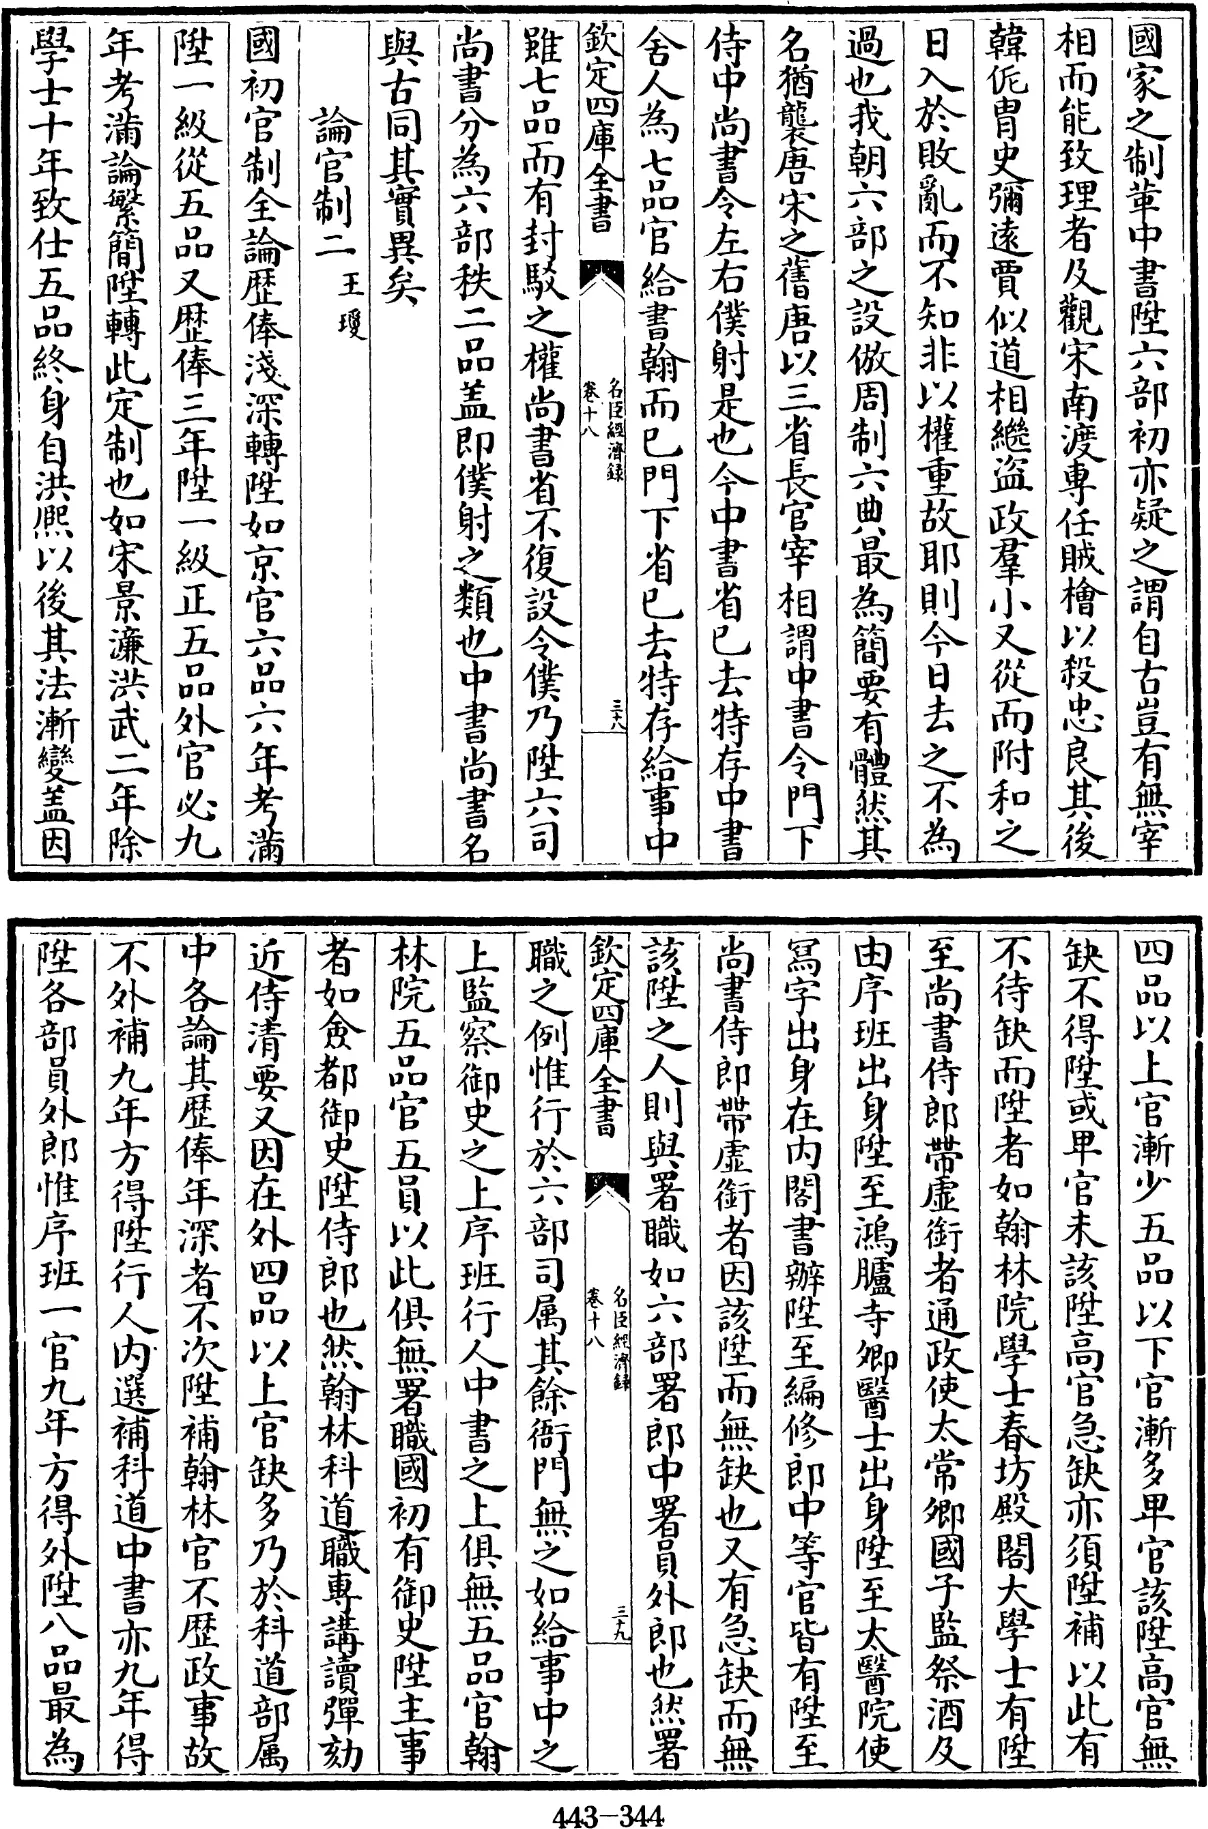 國家之制革中書陞六部初亦疑之謂自古豈有無宰
相而能致理者及觀宋南渡專任賊檜以殺忠良其後
韓侂胄史彌遠賈似道相繼盜政羣小又從而附和之
日入於敗亂而不知非以權重故耶則今日去之不為
過也我朝六部之設倣周制六典最為簡要有體然其
名猶襲唐宋之舊唐以三省長官宰相謂中書令門下
侍中尚書令左右僕射是也今中書省已去特存中書
舍人為七品官給書翰而已門下省已去特存給事中
欽定四庫全書
名臣經濟録
卷十八
三十八
雖七品而有封駁之權尚書省不復設令僕乃陞六司
尚書分為六部秩二品盖即僕射之類也中書尚書名
與古同其實異矣
論官制二 王瓊
國初官制全論歷俸淺深轉陞如京官六品六年考滿
陞一級從五品又歷俸三年陞一級正五品外官必九
年考滿論繁簡陞轉此定制也如宋景濂洪武二年除
學士十年致仕五品終身自洪熙以後其法漸變盖因
四品以上官漸少五品以下官漸多卑官該陞高官無
缺不得陞或卑官未該陞高官急缺亦須陞補以此有
不待缺而陞者如翰林院學士春坊殿閣大學士有陞
至尚書侍郎帶虛銜者通政使太常卿國子監祭酒及
由序班出身陞至鴻臚寺卿醫士出身陞至太醫院使
寫字出身在內閣書辦陞至編修郎中等官皆有陞至
尚書侍郎帶虛銜者因該陞而無缺也又有急缺而無
該陞之人則與署職如六部署郎中署員外郎也然署
欽定四庫全書
名臣經濟録
卷十八
三十九
職之例惟行於六部司属其餘衙門無之如給事中之
上監察御史之上序班行人中書之上俱無五品官翰
林院五品官五員以此俱無署職國初有御史陞主事
者如僉都御史陞侍郎也然翰林科道職專講讀彈劾
近侍清要又因在外四品以上官缺多乃於科道部属
中各論其歷俸年深者不次陞補翰林官不歷政事故
不外補九年方得陞行人內選補科道中書亦九年得
陞各部員外郎惟序班一官九年方得外陞八品最為
443-344